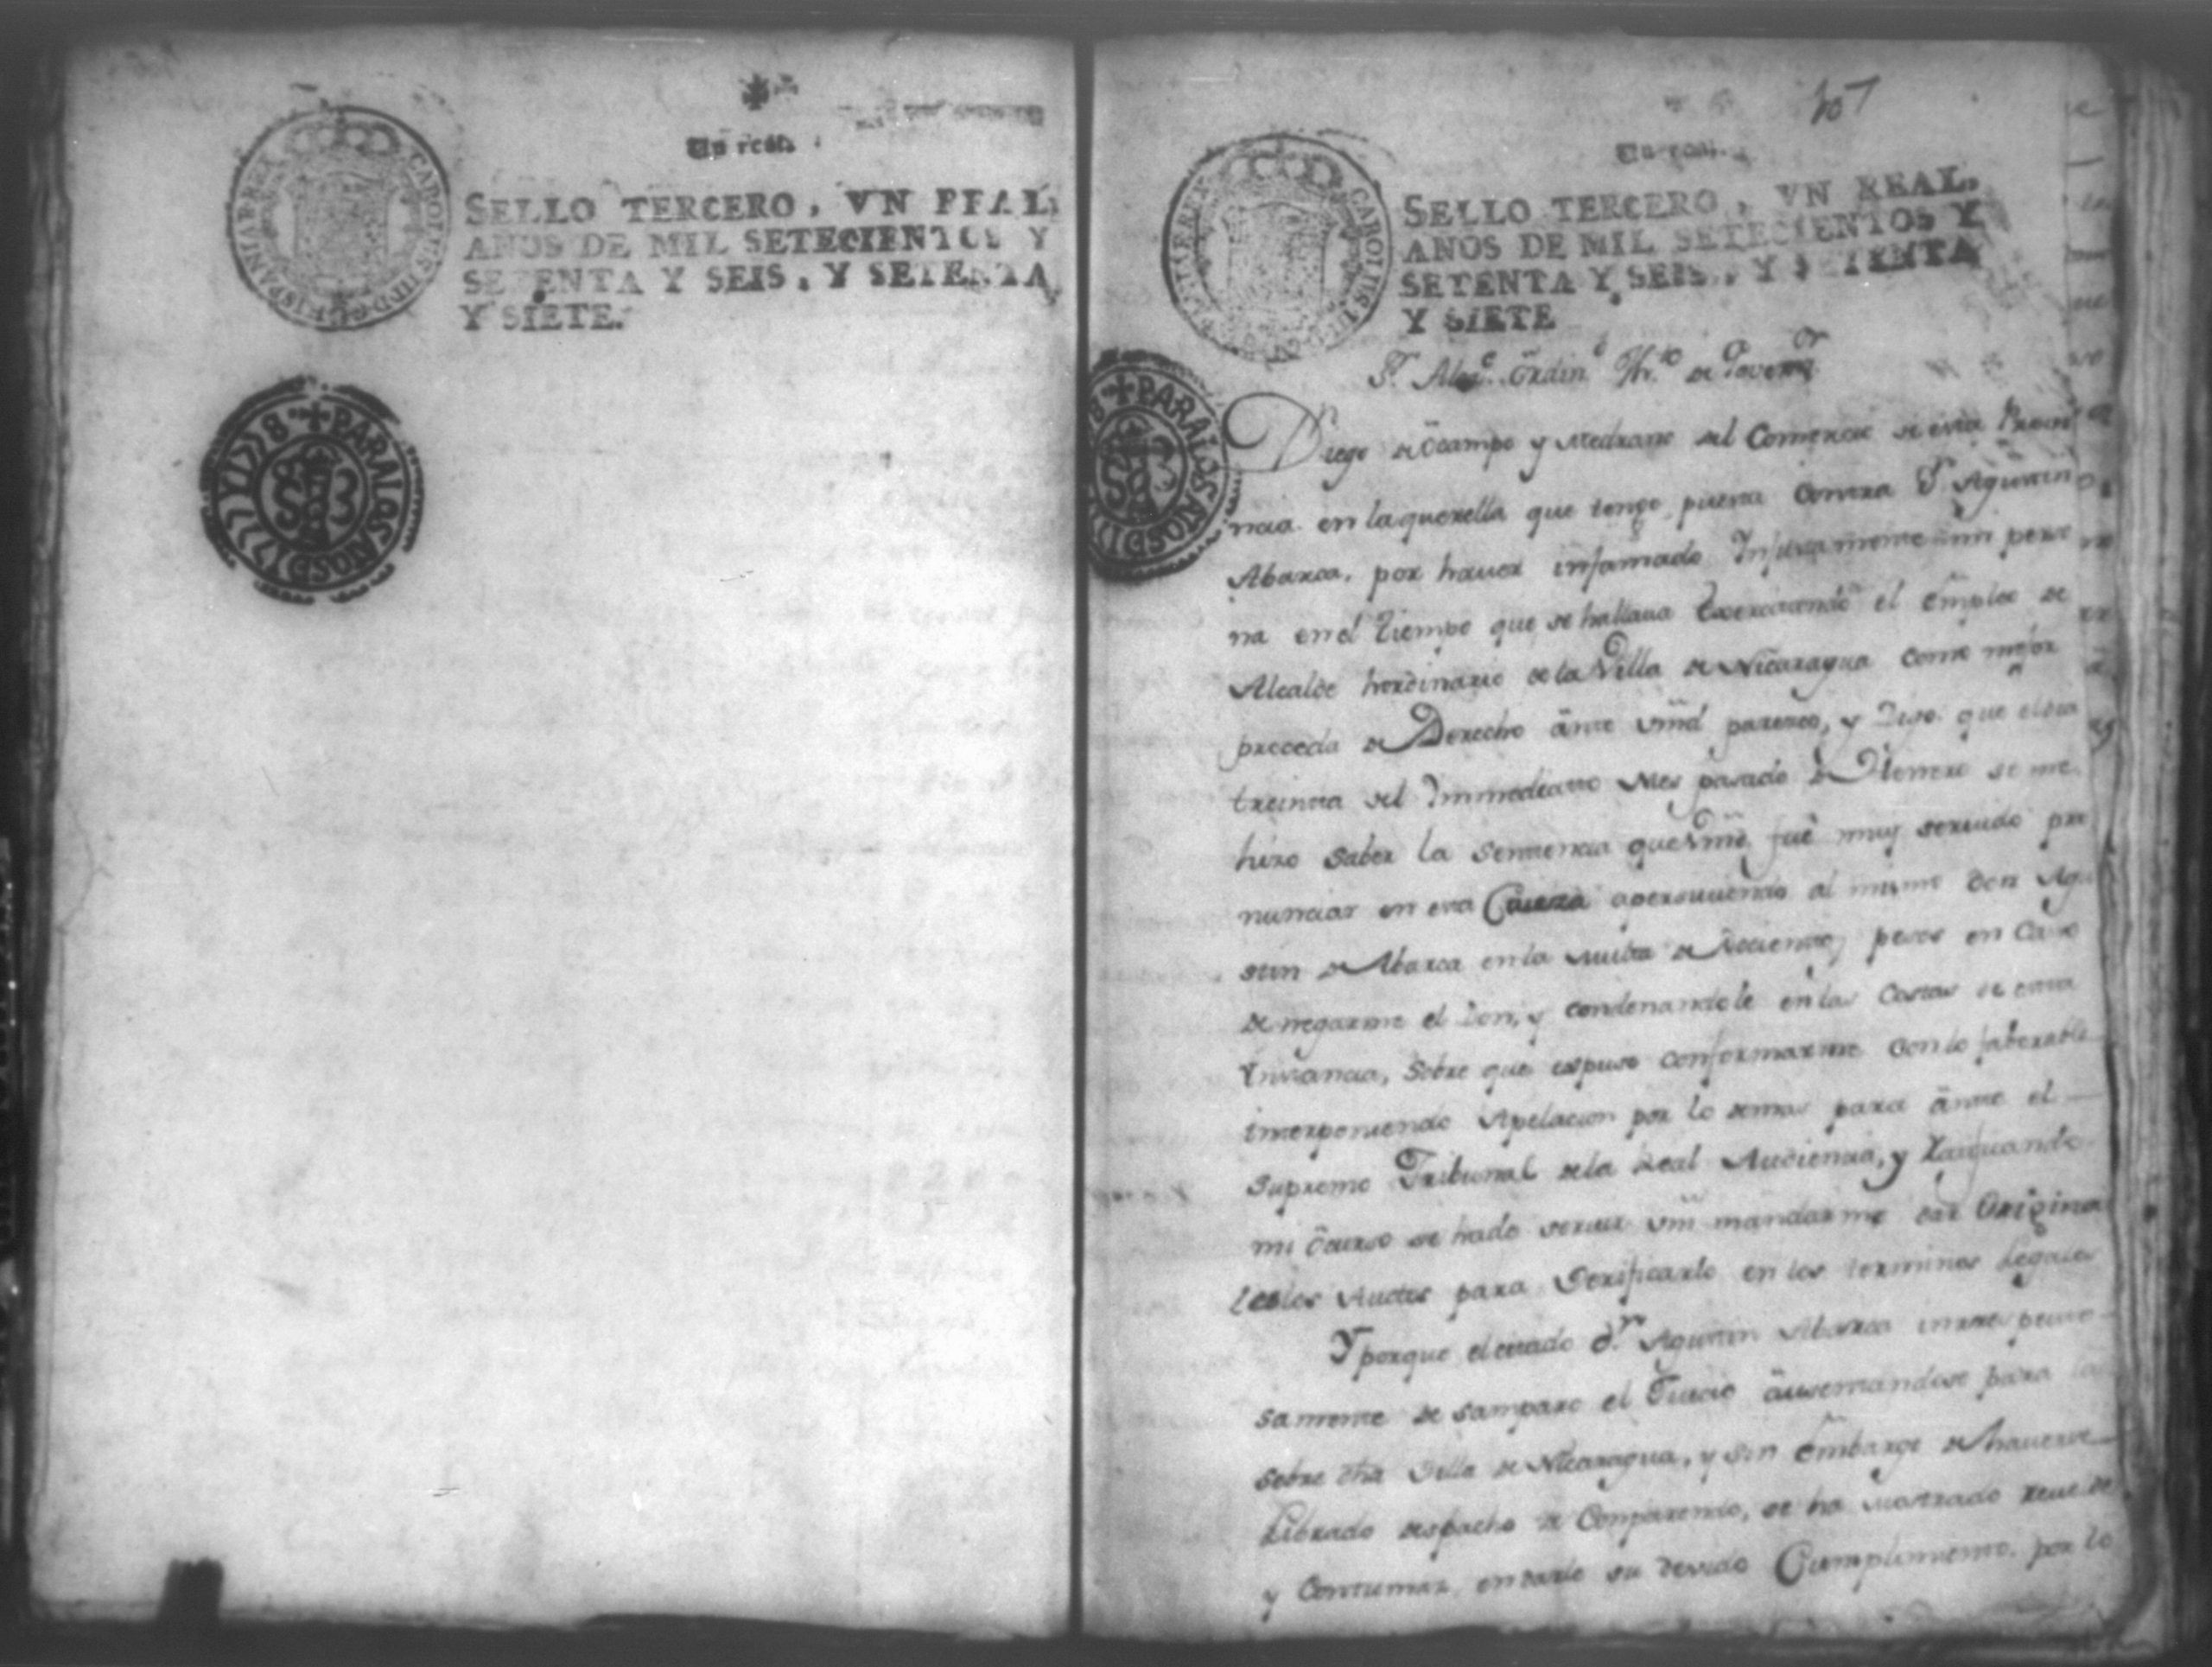 Un real.
SELLO TERCERO, VN REAL,
AÑOS DE MIL SETECIENTOS Y
SETENTA Y SEIS, Y SETENTA
Y SIETE.
CAROLUS III D G HISPANIAR REX
PARA LOS AÑOS DI 777 Y 778
107
Un real.
SELLO TERCERO, VN REAL,
AÑOS DE MIL SETECIENTOS Y
SETENTA Y SEIS, Y SETENTA
Y SIETE
CAROLUS III D G HISPANIAR REX
PARA LOS AÑOS DI
Sr. Alce. Ordino. Thte. de Governor
Diego de Ocampo y Medrano del Comercio de esta Provin
ncia en la querella que tengo puesta contra Dn Agustin
Abarca, por haver infamado Injustamente a mi perso
na en el tiempo que se hallaua Exerciendo el Empleo de
Alcalde hordinario de la Villa de Nicaragua como mejor
proceda de Derecho ante Vmd paresco, y Digo que el dia
treinta del Immediato Mes pasado de Henero se me
hizo saber la sentencia que Vmd. fue muy seruido pro
nunciar en esta Causa apersiuiendo al mismo Don Agu
stin de Abarca en la multa de Docientos pesos en Caso
de negarme el Don, y condenandole en las Costas de esta
Ynstancia, Sobre que expuse conformarme con lo faborable
interponiendo Apelacion por lo demas para ante el
Supremo Tribunal de la Real Audiencia, y
mi ocurso se ha de seruir Vm mandarme dar Origina
les los Auctos para Verificarlo en los terminos Legales
Y porque el citado Dn Agustin Abarca
samente desamparo el Juicio ausentandose para la
sobre dha Villa de Nicaragua, y sin Embargo de hauerse
Librado despacho de Comparendo, se ha mostrado reuelde
y Contumaz en darle su devido Cumplimiento. por lo